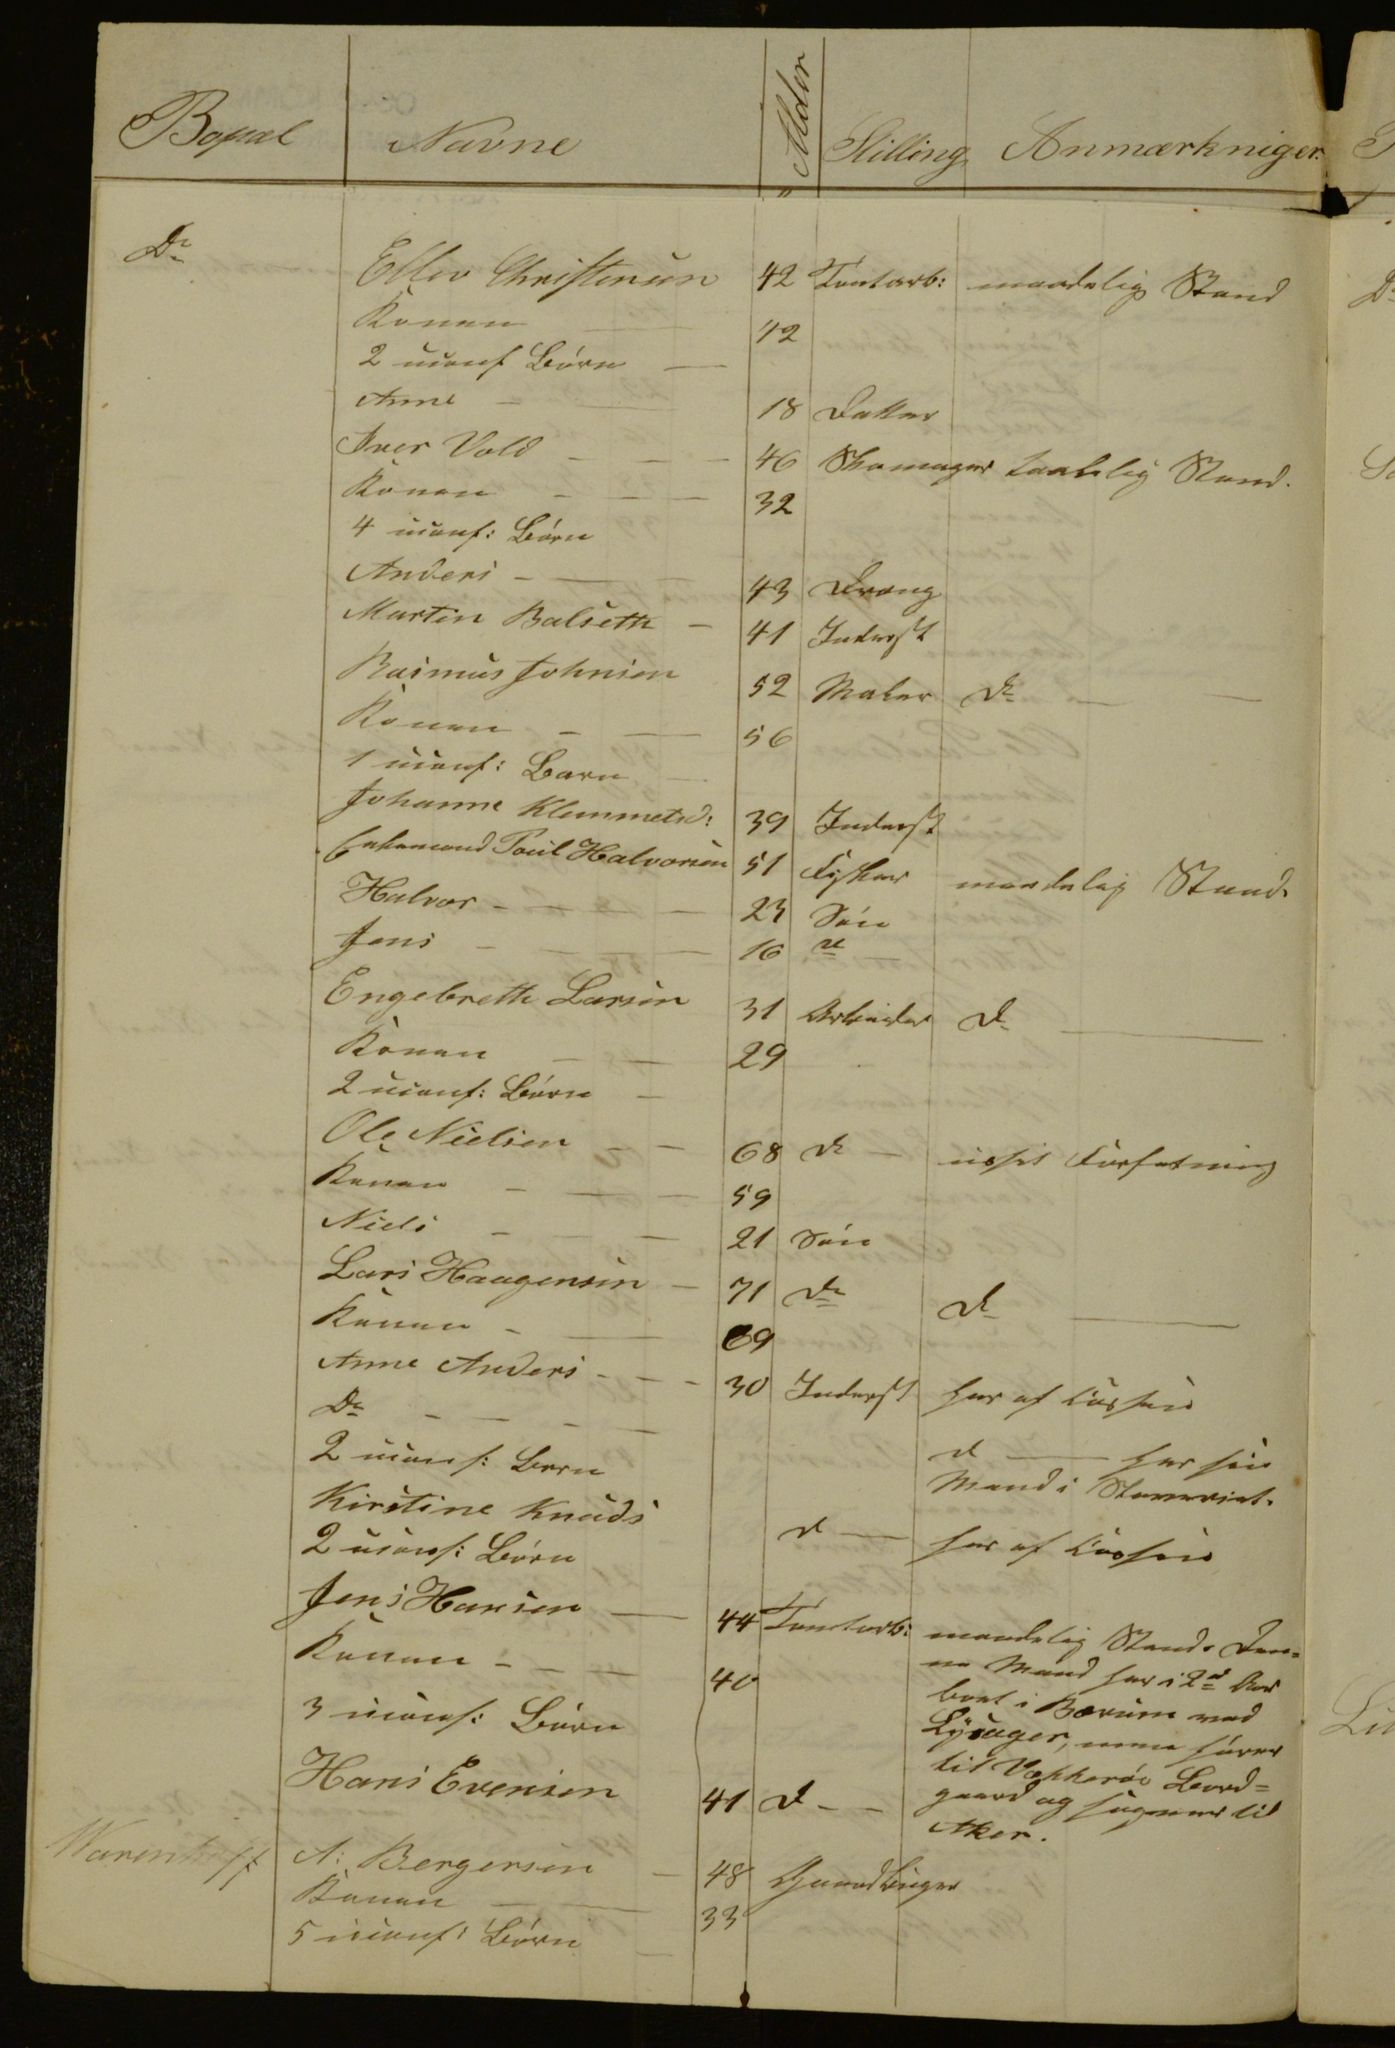 Bopæl Navne Alder Stilling Anmærkninger.
Do Ellev Christensen 42 Tomtarb: maadelig Stand
Konen 42
2 uconf Børn
Anne 18 Datter
Iver Vold 46 Skomager taalelig Stand.
Konen 32
4 uconf: Børn
Anders 43 Dreng
Martin Balseth 41 Inderst
Rasmus Johnsen 52 Maler Do
Konen 56
1 uconf: Barn
Johanne Klemmetsd: 39 Inderst
Enkemand Poul Halvorsen 51 Fisker maadelig Stand.
Halvor 23 Søn
Jens 16 do
Engebreth Larsen 31 Arbeider Do
Konen 29
2 uconf: Børn
Ole Nielsen 68 Do ussel Forfatning
Konen 59
Niels 21 Søn
Lars Haagensen 71 Do Do
Konen 69
Anne Anders 30 Inderst har af
Do
2 uconf: Børn D har sin
Mand i Slaveriet.
Kirstine Knuds D har af
2 uconf: Børn
Jens Hansen 44 Tomtarb: maadelig Stand. Den-
Konen 40 ne Mand har i 2d Aar
boet i Bærum ved
3 uconf: Børn Lysager, men hører
til Vækkerøe Bord-
Hans Evensen 41 D gaard og sogner til
Aker.
Warenhoff A: Bergersen 48 Gaardbruger
Konen 33
5 uconf: Børn